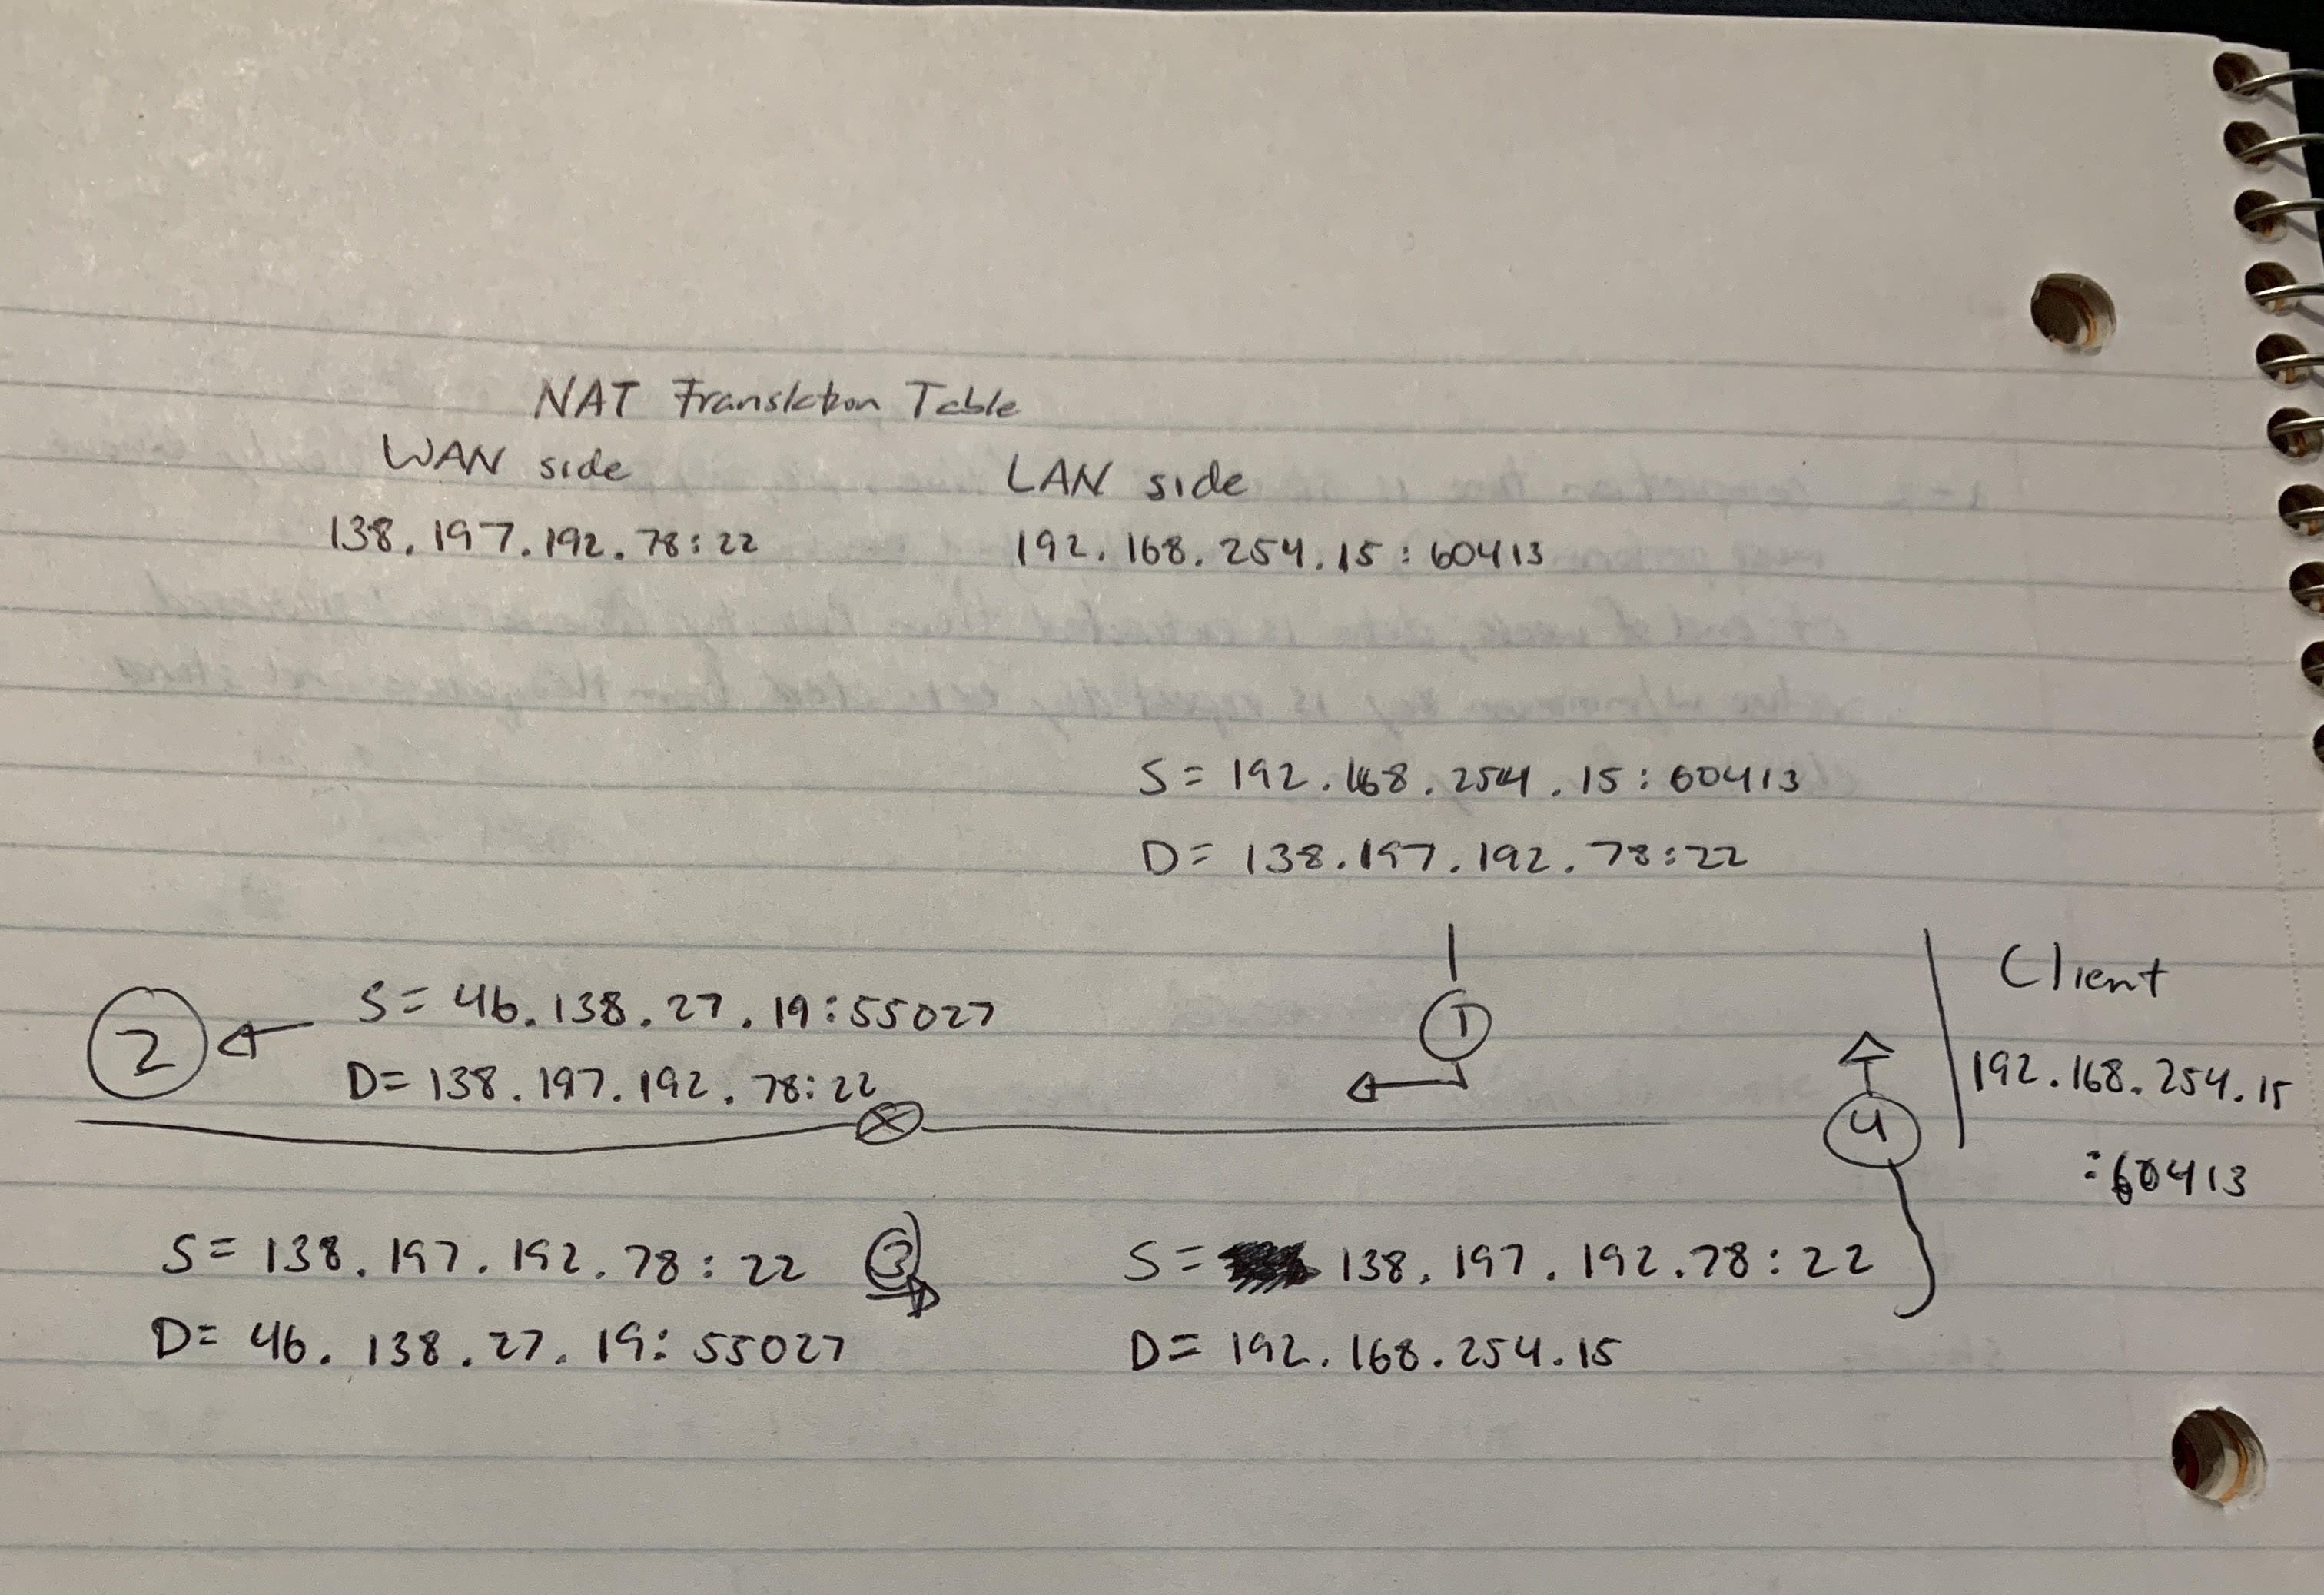 NAT Translation Table
WAN side
LAN side
138.197.192.78:22
192.168.254.15:60413
S= 192.168.254.15:60413
D= 138.197.192.78:22
1
Client
2
S= 46.138.27.19:55027
D= 138.197.192.78:22
192.168.254.15
:60413
4
S= 138.197.192.78:22
3
D= 46.138.27.19:55027
S= 138.197.192.78:22
D= 192.168.254.15